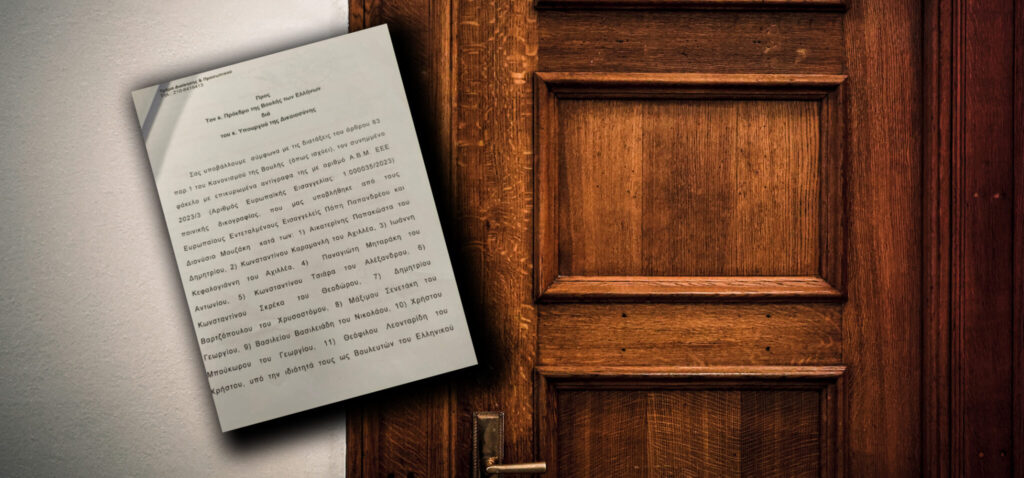 Τμήμα Διοίκησης & Προσωπικού
Προς
Τον κ. Πρόεδρο της Βουλής των Ελλήνων
διά
του κ. Υπουργού της Δικαιοσύνης
Σας υποβάλλουμε σύμφωνα με τις διατάξεις του άρθρου 83
παρ 1 του Κανονισμού της Βουλής (όπως ισχύει), τον συνημμένο
φάκελο με επικυρωμένα αντίγραφα της με αριθμό Α.Β.Μ. ΕΕΕ
2023/3 (Αριθμός Ευρωπαϊκής Εισαγγελίας: 1.000035/2023)
ποινικής δικογραφίας, που μας υποβλήθηκε από τους
Ευρωπαίους Εντεταλμένους Εισαγγελείς Πόπη Παπανδρέου και
Διονύσιο Μουζάκη κατά των: 1) Αικατερίνης Παπακώστα του
Δημητρίου, 2) Κωνσταντίνου Καραμανλή του Αχιλλέα, 3) Ιωάννη
Κεφαλογιάννη του Αχιλλέα, 4) Παναγιώτη Μηταράκη του
Αντωνίου, 5) Κωνσταντίνου Τσιάρα του Αλέξανδρου, 6)
Κωνσταντίνου Σκρέκα του Θεοδώρου, 7) Δημητρίου
Βαρτζόπουλου του Χρυσοστόμου, 8) Μάξιμου Σενετάκη του
Γεωργίου, 9) Βασιλείου Βασιλειάδη του Νικολάου, 10) Χρήστου
Μπουκώρου του Γεωργίου, 11) Θεόφιλου Λεονταρίδη του
Χρήστου, υπό την ιδιότητά τους ως Βουλευτών του Ελληνικού